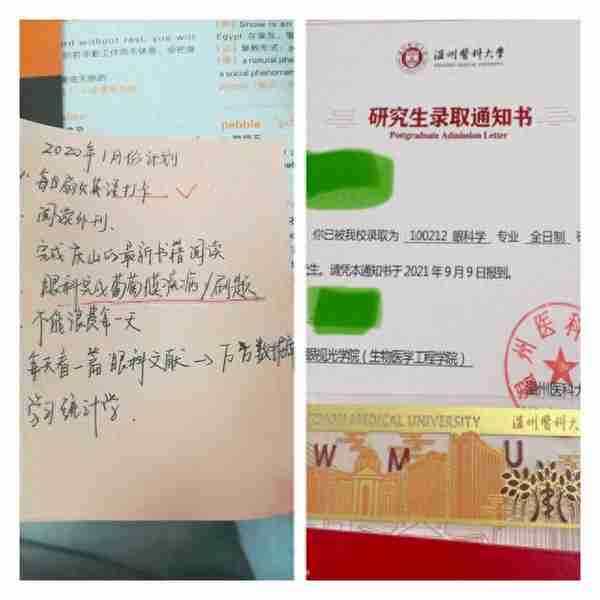 Snow is an
ord without rest, you will
Egypt 在埃及，雪
a natural phe
a social phenomen
pebble
2020年1月份计划
每日扇贝英语打卡
阅读外刊.
完成庆山的最新书籍阅读
眼科完成葡萄膜疾病/刷题
不能浪费每一天
每天看一篇眼科文献→万方数据库
学习统计学.
温州醫科大學
WENZHOU MEDICAL UNIVERSITY
研究生录取通知书
Postgraduate Admission Letter
你已被我校录取为 100212 眼科学 专业 全日制
生。请凭本通知书于2021年9月9日报到。
眼视光学院（生物医学工程学院）
州医科
温州医科大
ZHOU MEDICAL UNIVERSITY 温州醫科大
W M U